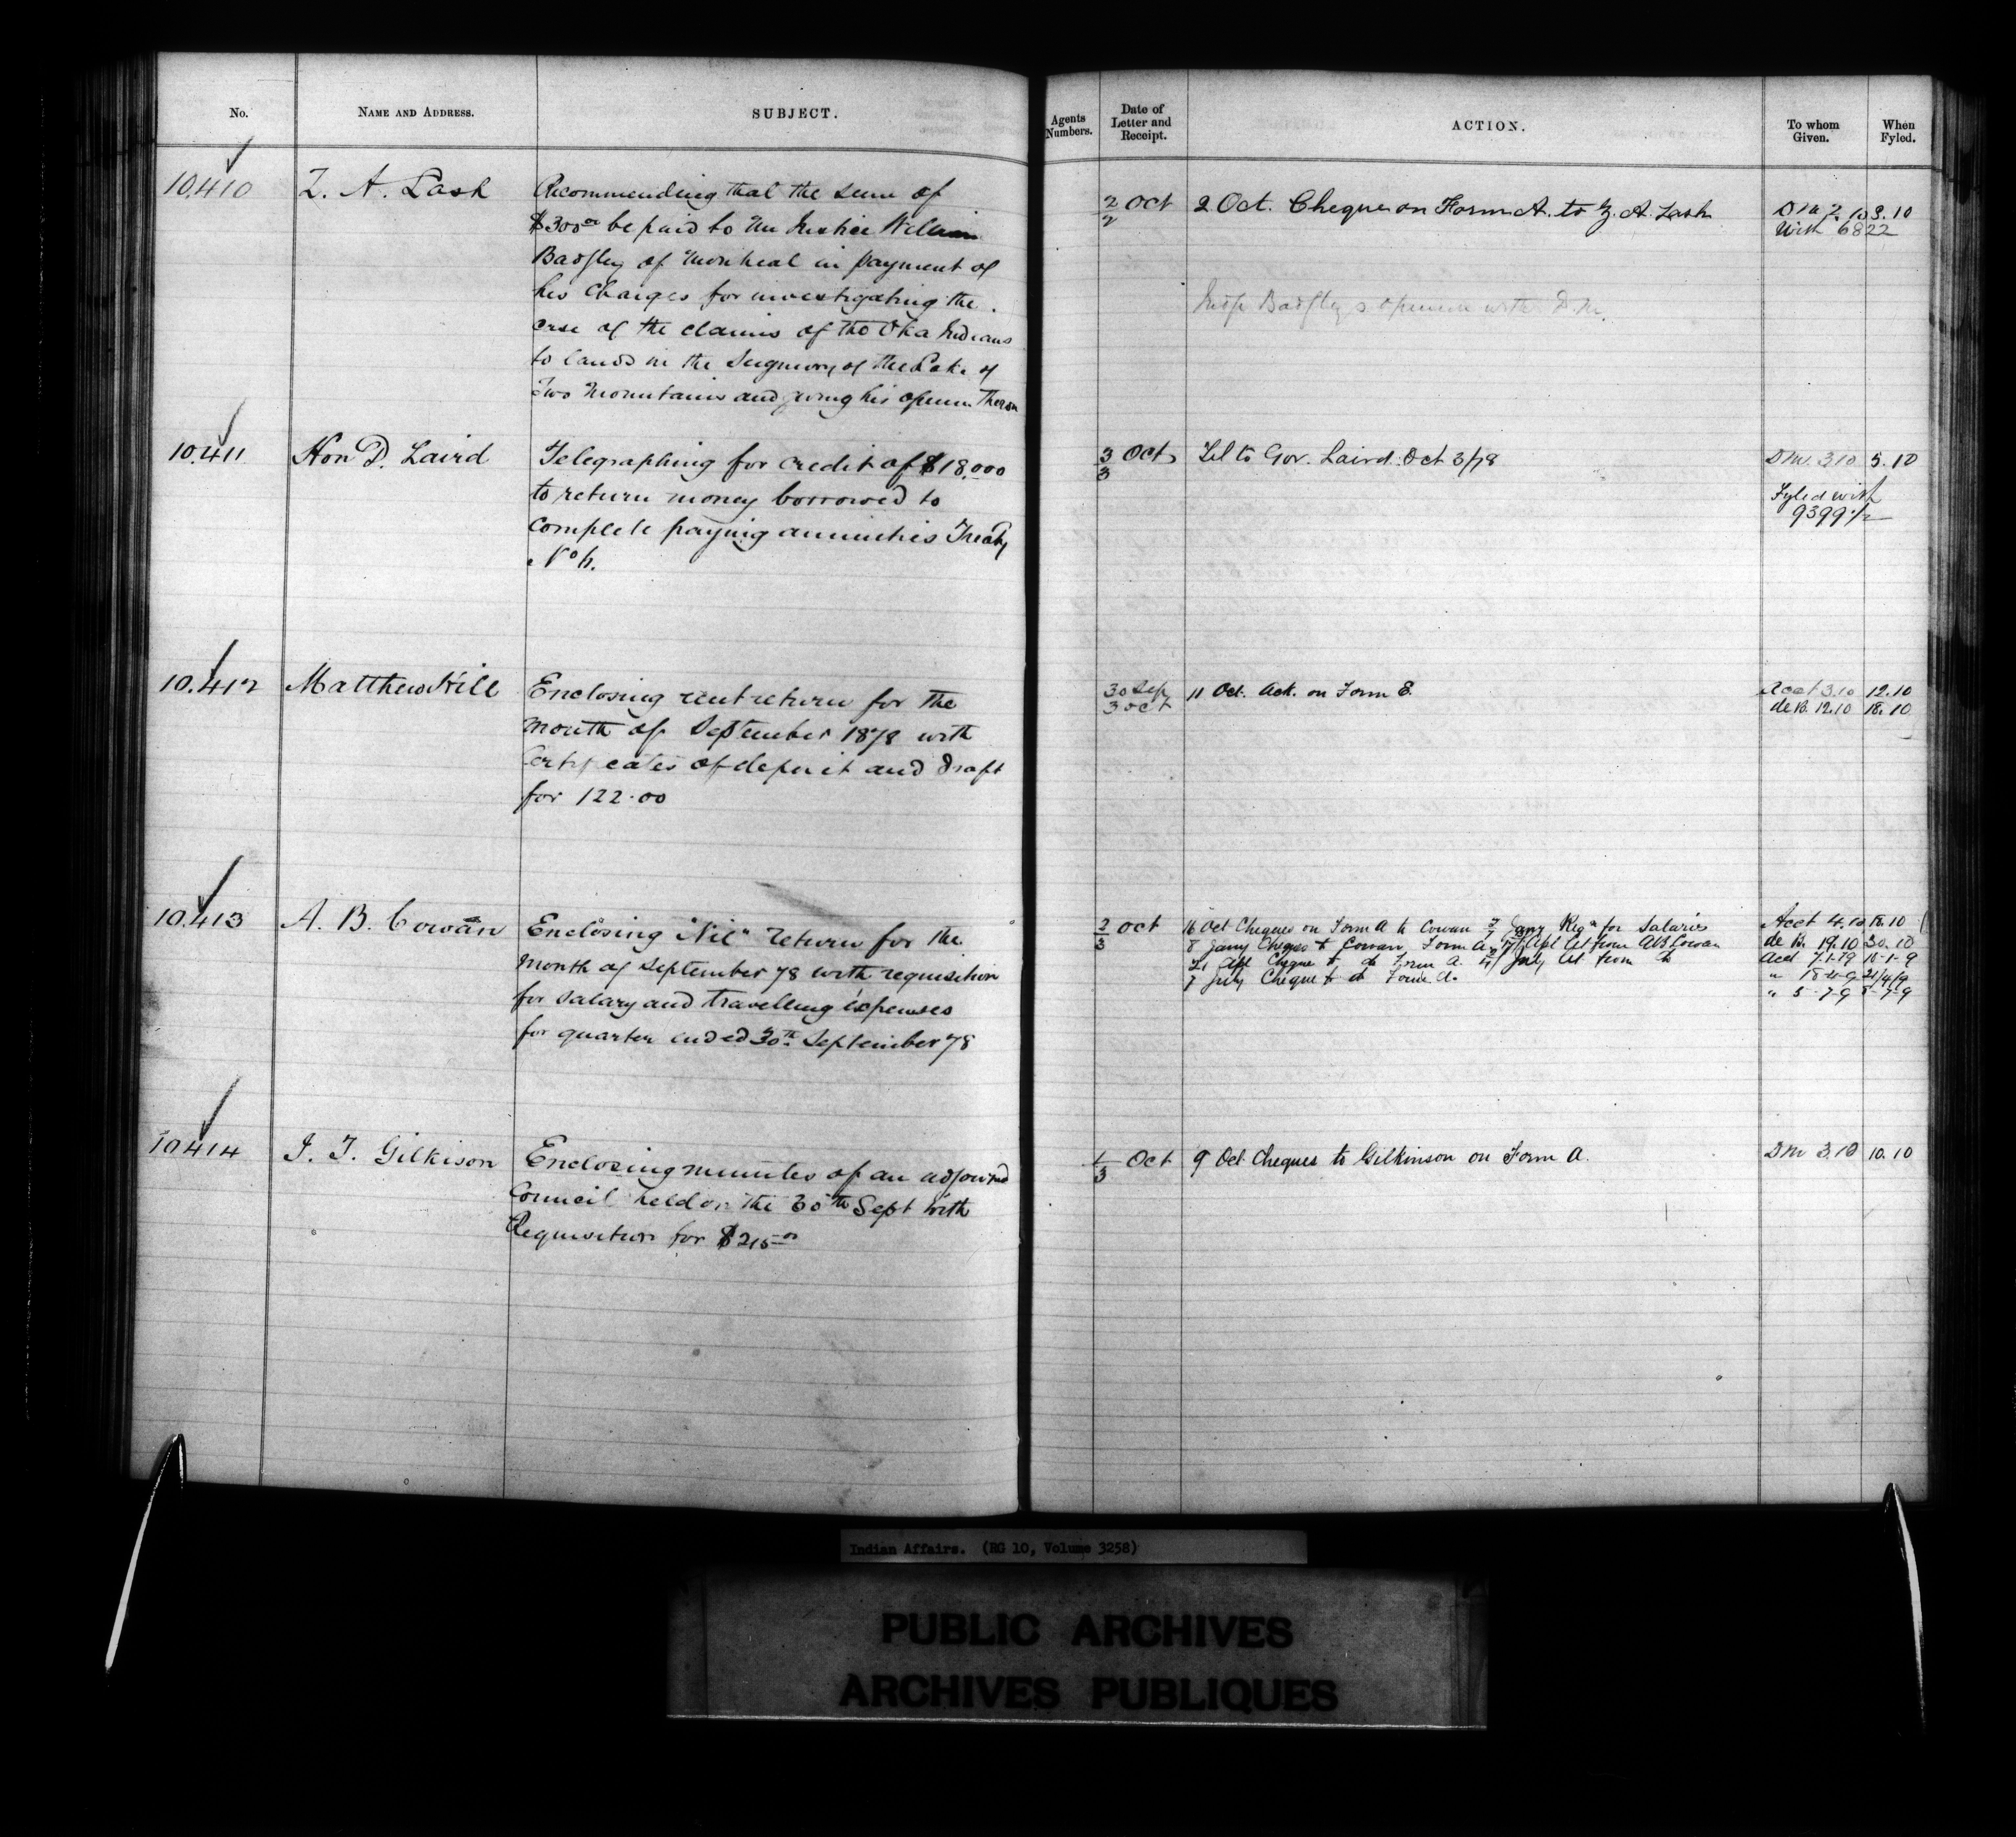 No.
NAME AND ADDRESS.
SUBJECT.
10.410
Z. A. Lash
Recommending that the sum of
$300.00 be paid to Mr Justice William
Badgley of Montreal in payment of
his charges for investigating the
case of the claims of the Oka Indians
to lands in the Seigniory of the Lake of
Two Mountains and giving his opinion thereon
10.411
Hon D. Laird
Telegraphing for credit of $18.000
to return money borrowed to
complete paying annuities Treaty
No 6.
10.412
Matthew Hill
Enclosing rent return for the
month of September 1878 with
Certificates of deposit and draft
for 122.00
10.413
A. B. Cowan
Enclosing "Nil" return for the
month of September 78 with requisition
for salary and travelling expenses
for quarter ended 30th September 78
10414
J. T. Gilkison
Enclosing minutes of an adjourned
Council held on the 30th Sept with
Requisition for $215.00
Agents Numbers.
Date of Letter and Receipt.
ACTION.
To whom Given.
When Fyled.
2/2 Oct
2 Oct. Cheque on Form A. to Z. A. Lash
DM 2.10 3.10
With 6822
Badgley's opinion with D.M.
3/3 Oct
Tel to Gov. Laird Oct 3/78
DM. 3.10 5.10
Fyled with
9399 1/2
30 Sep
3 Oct
11 Oct. Ack. on Form E.
Acct 3.10 12.10
de B. 12.10 18.10
2/3 Oct
16 Oct Cheques on Form A to Cowan Jany Reqn for Salaries
8 Jany Cheques to Cowan Form A Apl let from AB Cowan
21 Apl Cheque to do Form A. July let from do
7 July Cheque to do Form A.
Acct 4.10 18.10
de B. 19.10 30.10
Acct 7.1.79 16-1-9
" 18-4-9 21/4/9
" 5-7-9 8-7-9
1/3 Oct
9 Oct Cheques to Gilkinson on Form A.
DM 3.10 10.10
Indian Affairs. (RG 10, Volume 3258)
PUBLIC ARCHIVES
ARCHIVES PUBLIQUES